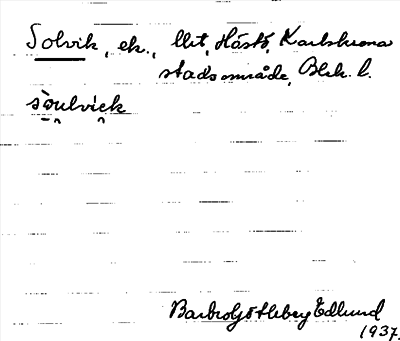 Solvik, ek., lht, Hästö, Karlskrona
stadsområde, Blek. l.
sòulvick
Barbro Götheberg Edlund
1937.